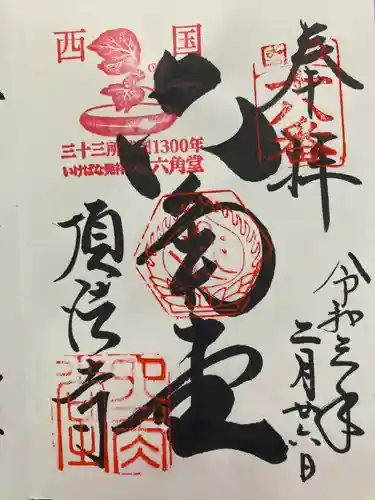 奉拝
西国
十八番
三十三所
1300年
いけばな発祥の
六角堂
六角堂
頂法寺
令和三年
二月廿六日